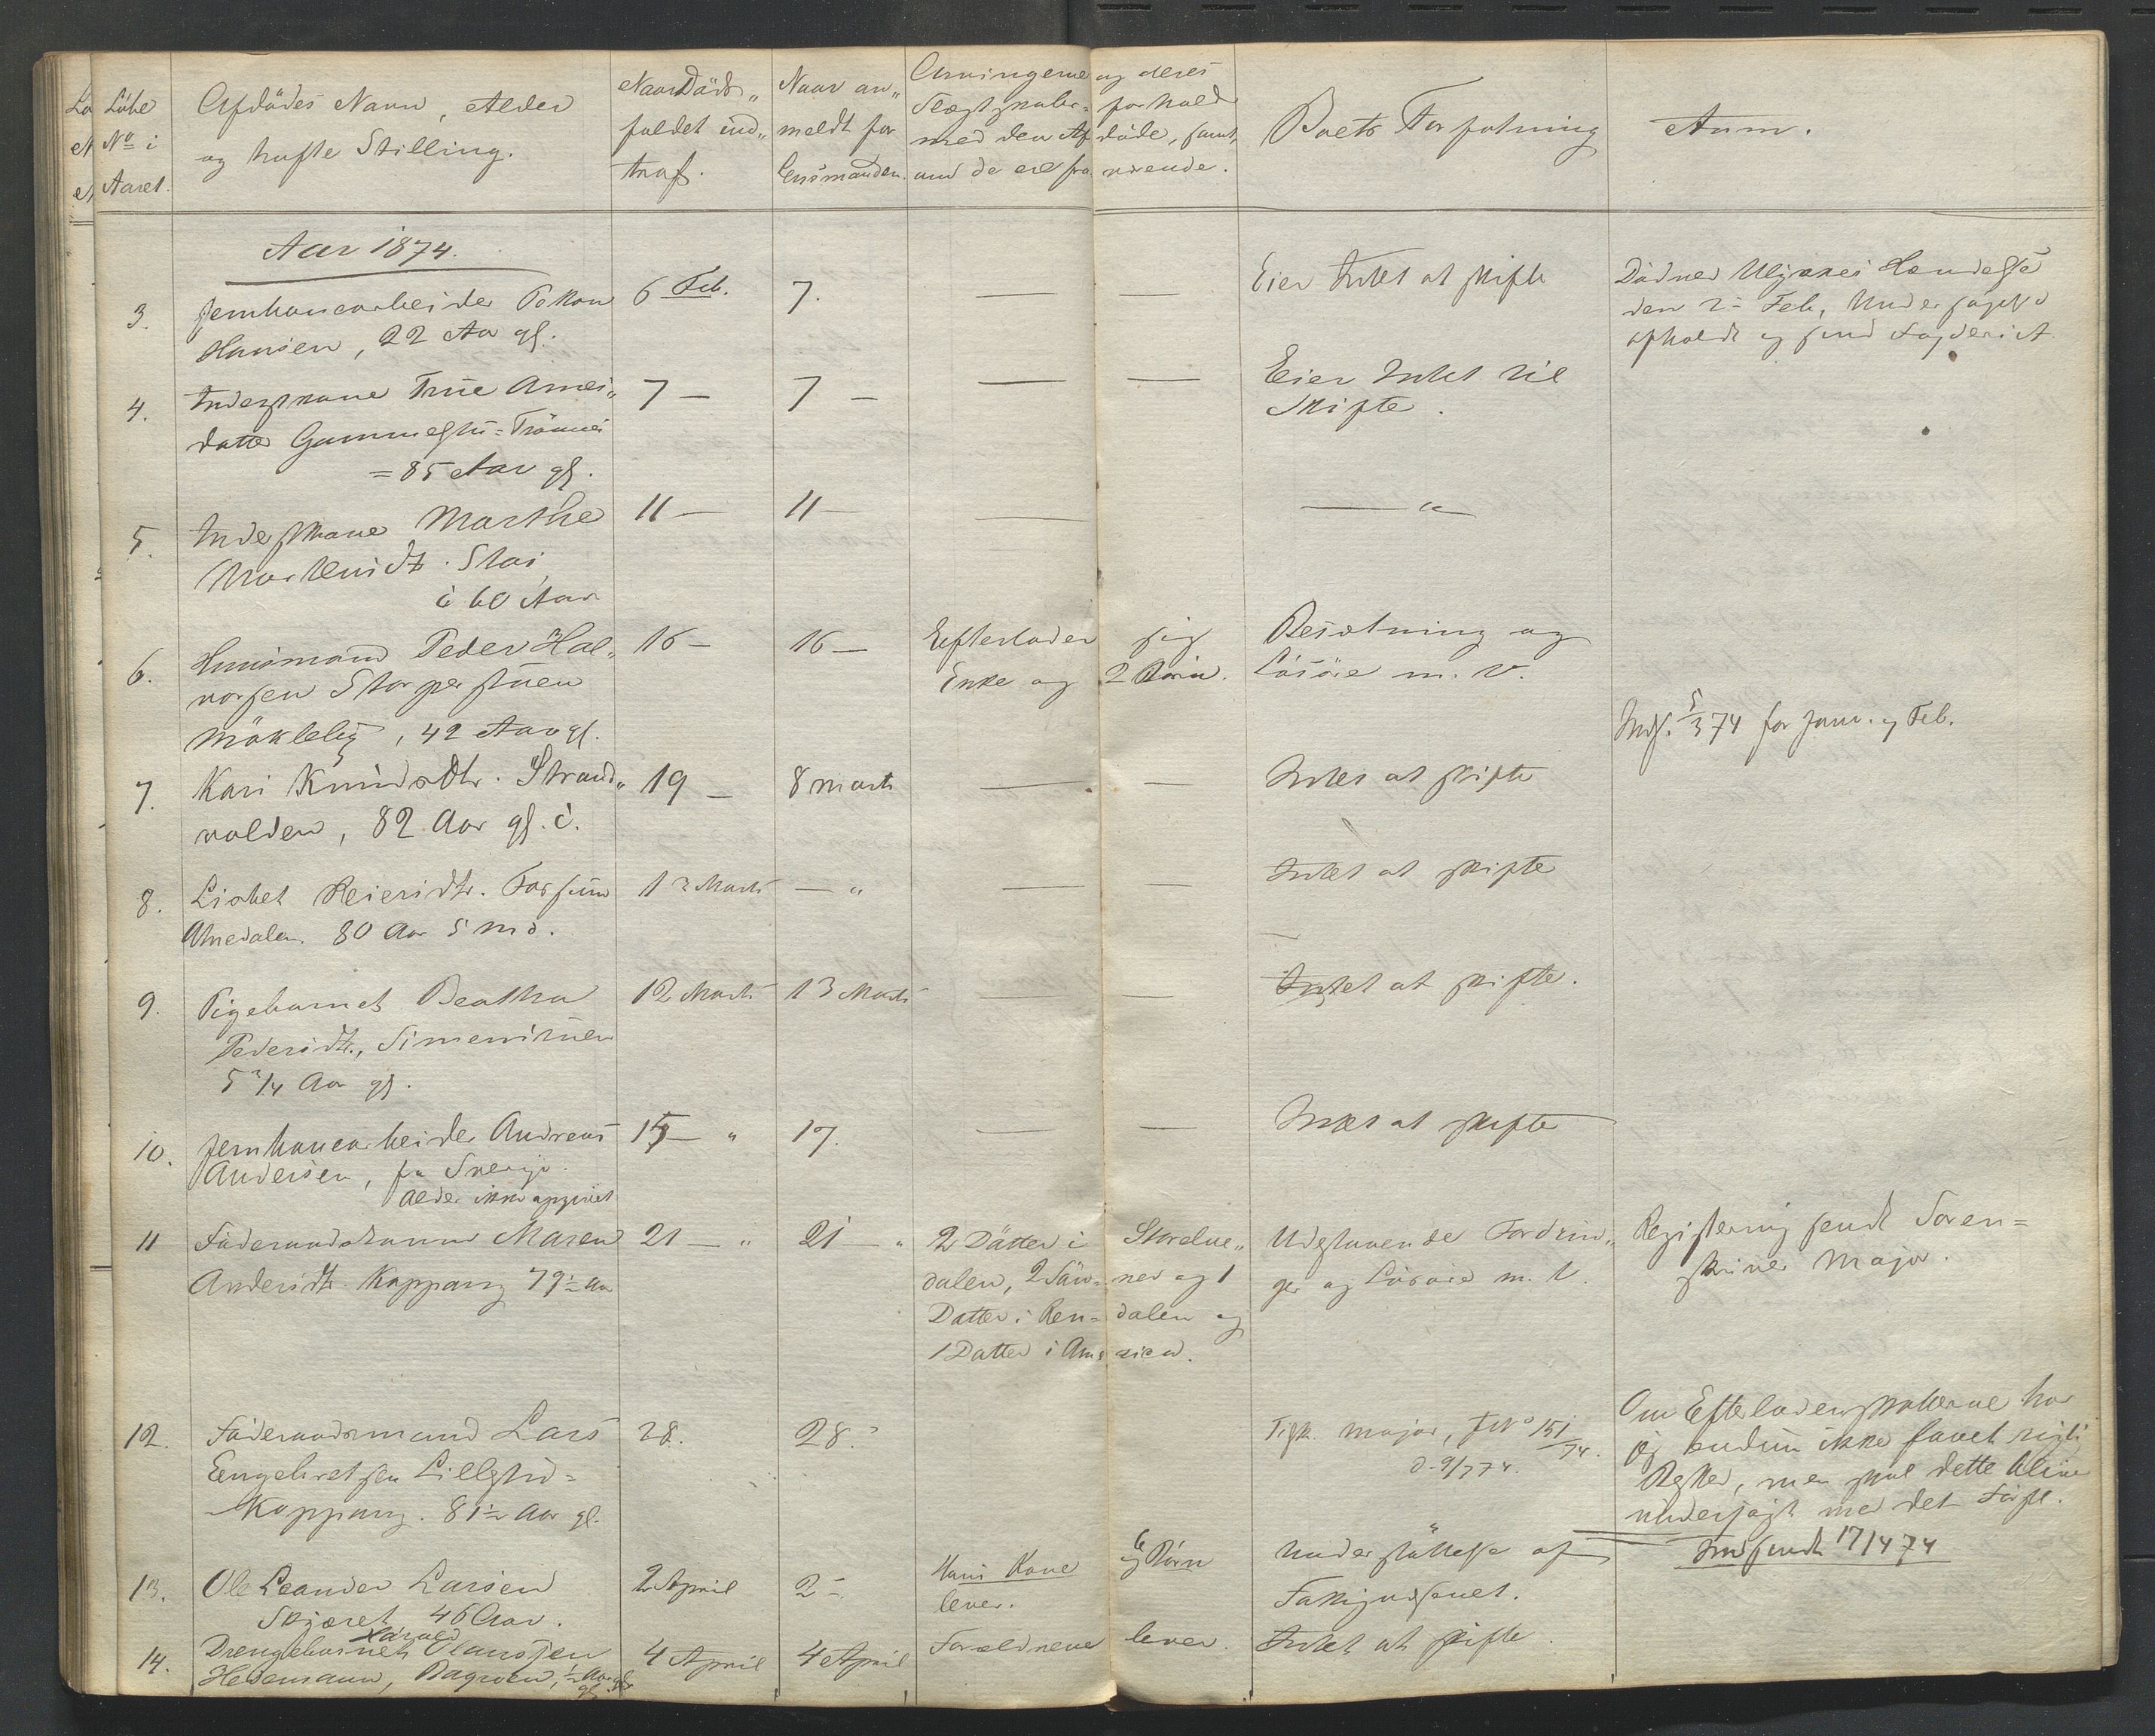 Løbe
No i
Aaret.
Afdødes Navn, Alder
og havte Stilling.
Naar Døds„
faldet ind„
traf.
Naar an„
meldt for
Lensmanden.
Arvingerne og deres
Slægtskabs= forhold
med den Af døde, samt
om de ere fra værende.
Boets Forfatning
Anm.
Aar 1874.
3.
Jernbanearbeider Håkon
Hansen, 22 Aar gl.
6 Feb.
7.
Eier Intet at skifte
Død ved Ulykkes Hændelse
den 2= Feb, Undersøgelse
opholdt og send Fogderiet
4.
Inderstkone Trine Arnes„
datter Gammelstu=Trønnes
=85 Aar gl.
7 —
7 —
Eier Intet til
Skifte.
5.
Inderstkone Marthe
Mortensdtr. Stai
i 60 Aar
11 —
11 —
— " —
6.
Huusmand Peder Hal„
vorsen Storperstuen
Møkleby, 42 Aar gl.
16 —
16 —
Efterlader sig
Enke og 2 Børn.
Besætning og
Løsøre m. V.
Inds. 5/3 74 for Janr. og Feb.
7.
Kari Knudsdtr. Strand„
volden, 82 Aar gl. i.
19 —
8 Marts
Intet at skifte
8.
Lisbet Reiersdtr. Forsuu
Atnedalen 80 Aar 5 Md.
1 Marts
— "
Intet at skifte
9.
Pigebarnet Beathe
Pedersdtr., Simenstuen
5 3/4 Aar gl.
12 Marts
13 Marts
Intet at skifte.
10.
Jernbanearbeider Andreas
Andersen, fra Sverige.
Alder ikke opgivet
15 — "
17.
Intet at skifte
11
Føderaadskone Maren
Andersdtr. Koppang 79½ Aar
21 — "
21 — "
2 Døtter i Storelve„
dalen, 2 Søn= ner og 1
Datter i Ren= dalen og
1 Datter i Ame rica.
Udestaaende Fordrin„
ger og Løsøre m. V.
Registering sendt Soren=
skriver Major.
12.
Føderaadsmand Lars
Engebretsen Lillestu=
Koppang. 81½ Aar gl.
28.
28.
Major, JNo 151/74.
d. 9/7 74.
Om Efterladenskaberne har
jeg endnu ikke faaet rigti
Besked, men skal dette blive
undersøgt med det Første.
13.
Ole Leander Larsen
Skjæret 46 Aar.
2 April
2 =
Hans Kone og 6 Børn
lever.
Understøttelse af
Fattigvæsenet.
Indsendt 17/4 74
14.
Drengebarnet Harald Olaussen
Hedemann, Bagroen, ½ Aar gl.
4 April
4 April
Forældrene lever.
Intet at skifte.